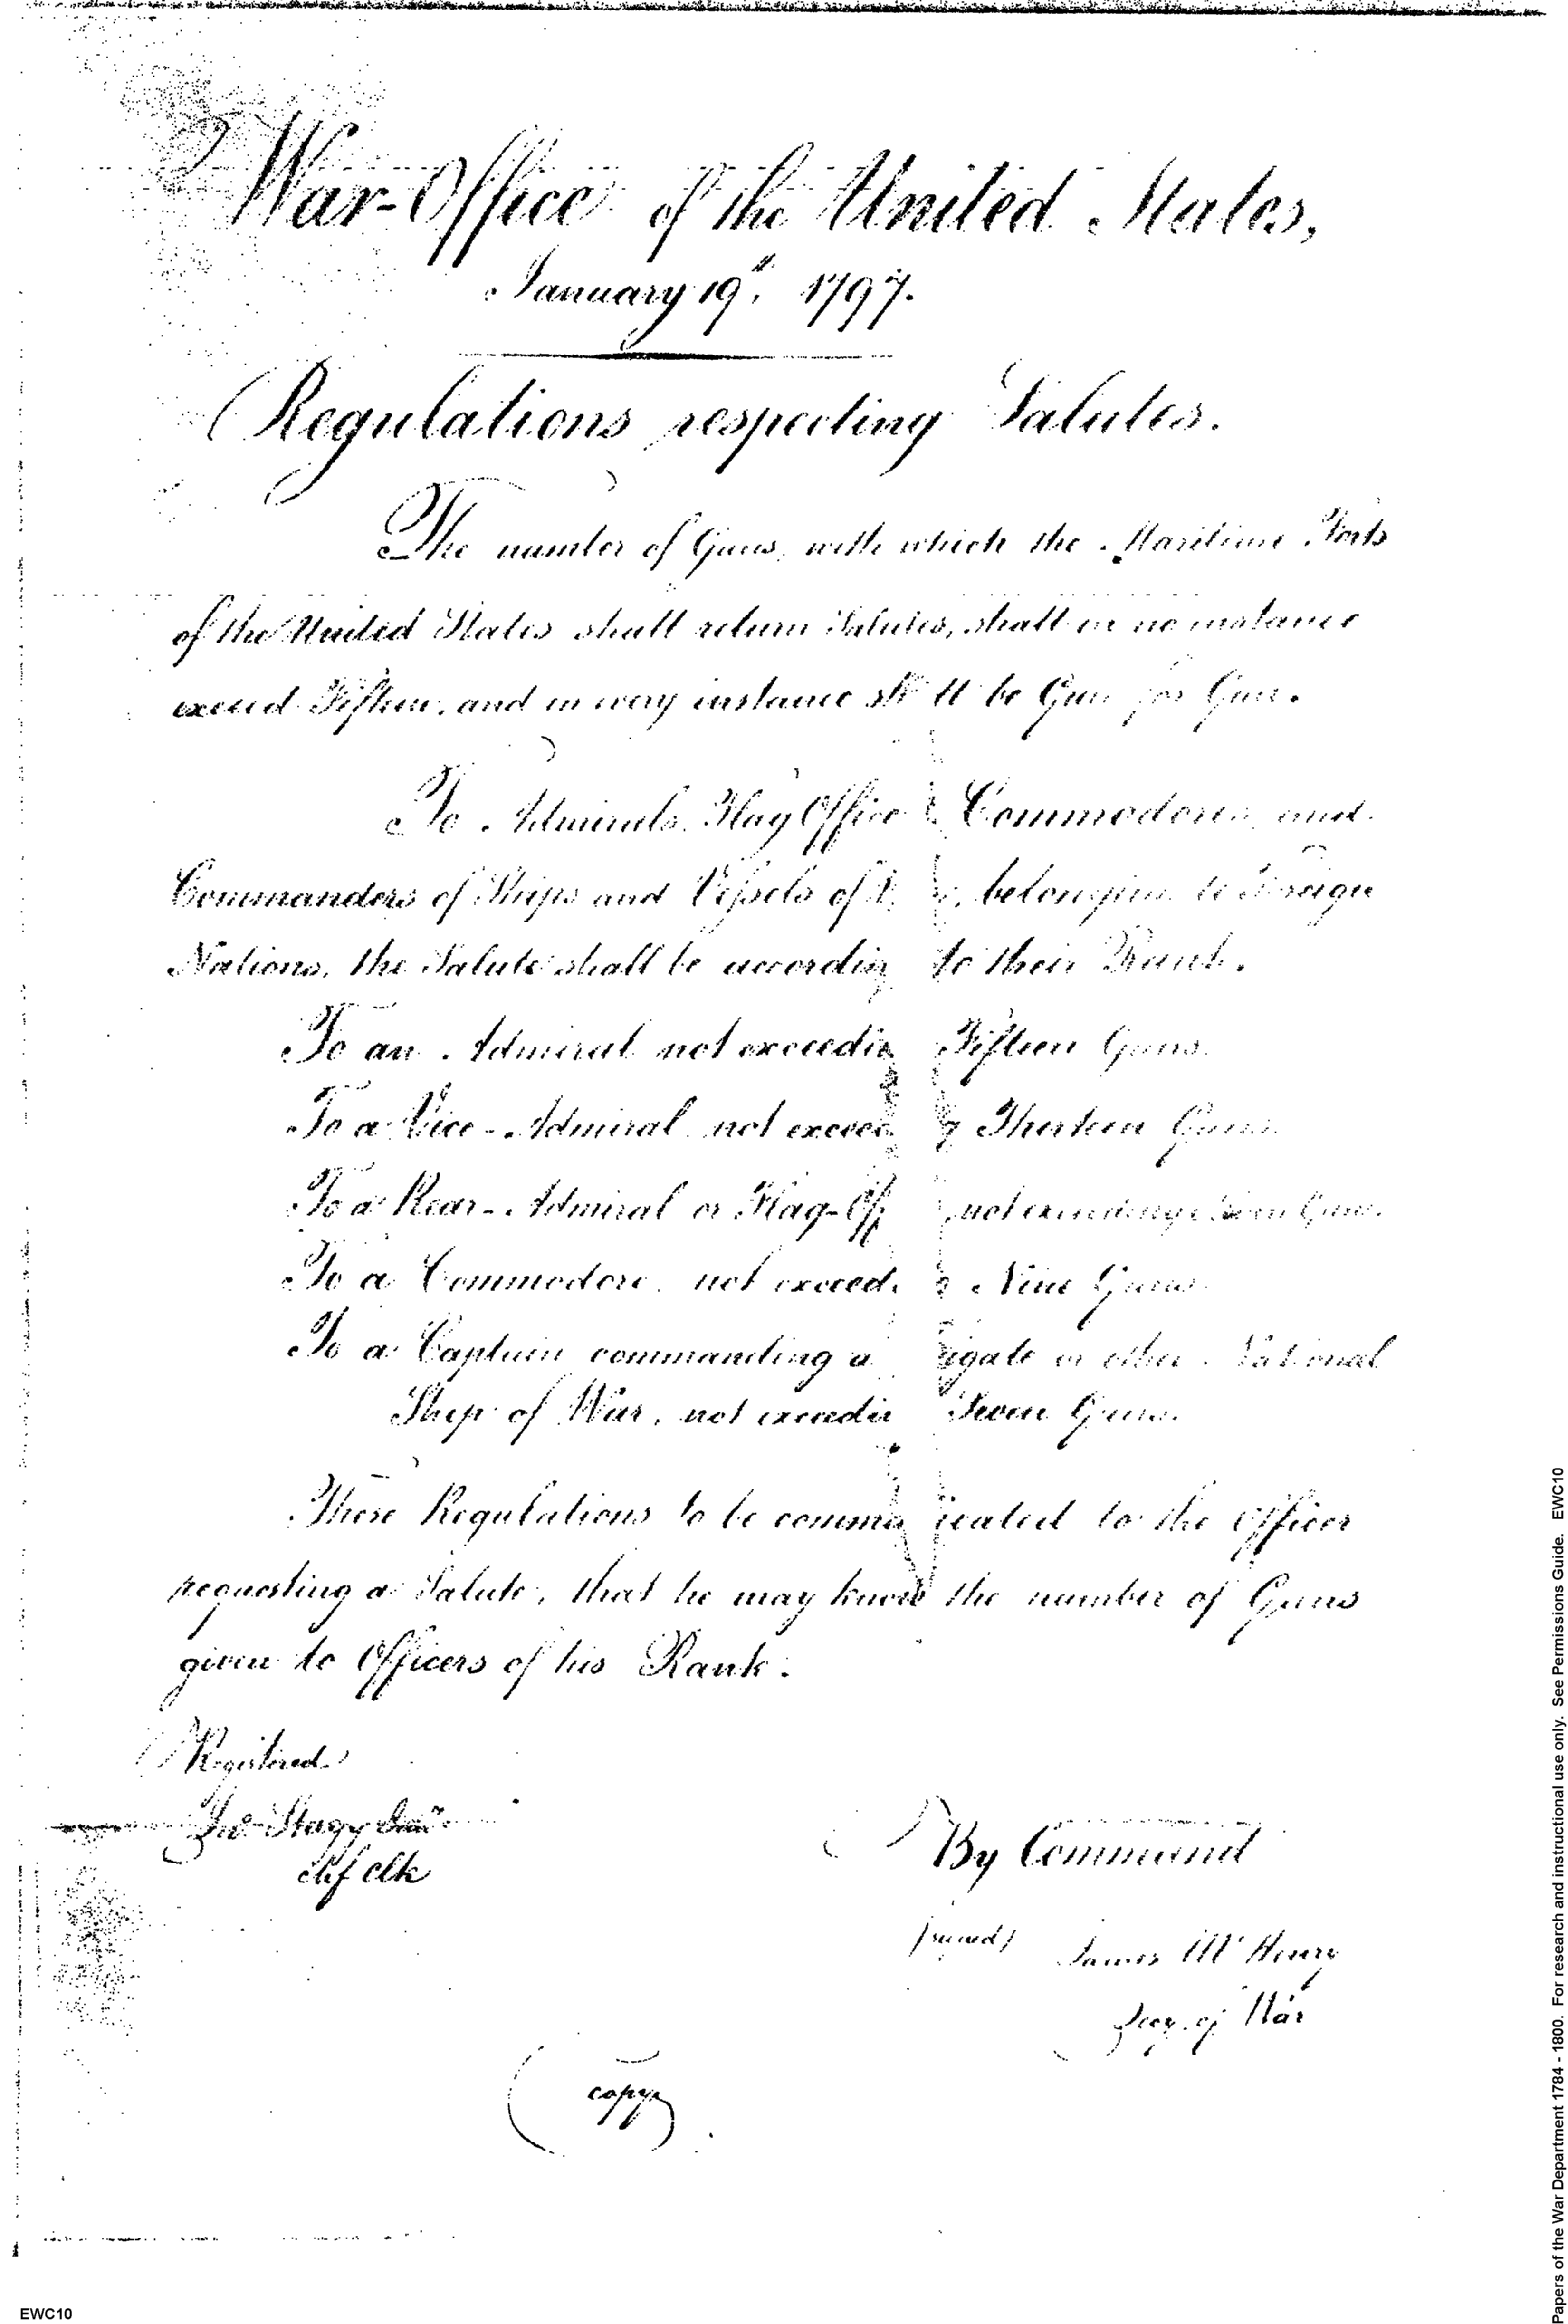 War-Office of the United States,
January 19th, 1797.
Regulations respecting Salutes.
The number of Guns, with which the Maritime Forts
of the United States shall return Salutes, shall in no instance
exceed Fifteen, and in every instance sh ll be Gun for Gun.
To Admirals, Flag Office Commodores, and
Commanders of Ships and Vessels of belonging to Foreign
Nations, the Salute shall be accordin to their Rank.
To an Admiral not exceedin Fifteen Guns.
To a Vice-Admiral not exceed g Thirteen Guns.
To a Rear-Admiral or Flag-Off not exceeding Guns.
To a Commodore, not exceed g Nine Guns.
To a Captain commanding a igate or other National
Ship of War, not exceedin Seven Guns.
These Regulations to be commu icated to the Officer
requesting a Salute, that he may know the number of Guns
given to Officers of his Rank.
Registered
Jno Stagg Junr
chf clk
By Command
(signed) James McHenry
Secy. of War
(copy)
EWC10
Papers of the War Department 1784 - 1800. For research and instructional use only. See Permissions Guide. EWC10